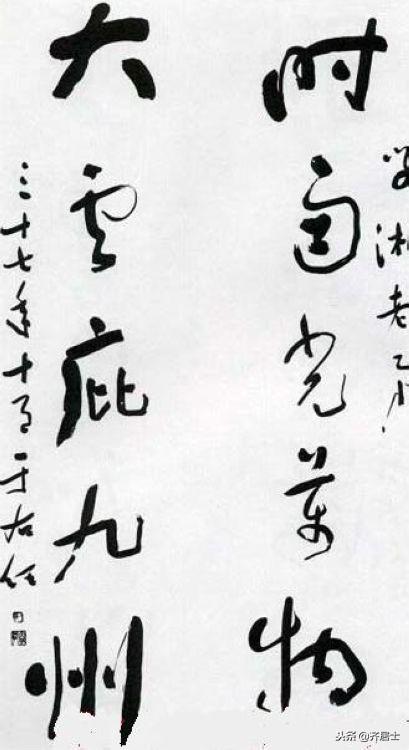 湘老
時雨光萬物
大雲庇九州
三十七年十月于右任
头条 @齐居士